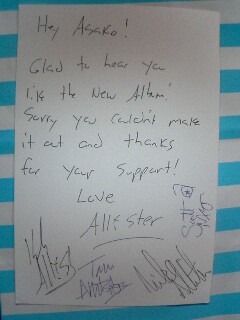 Hey Asako!
Glad to hear you
like the New Album!
Sorry you couldn't make
it out and thanks
for your support!
Love
Allister
Scott
Tim